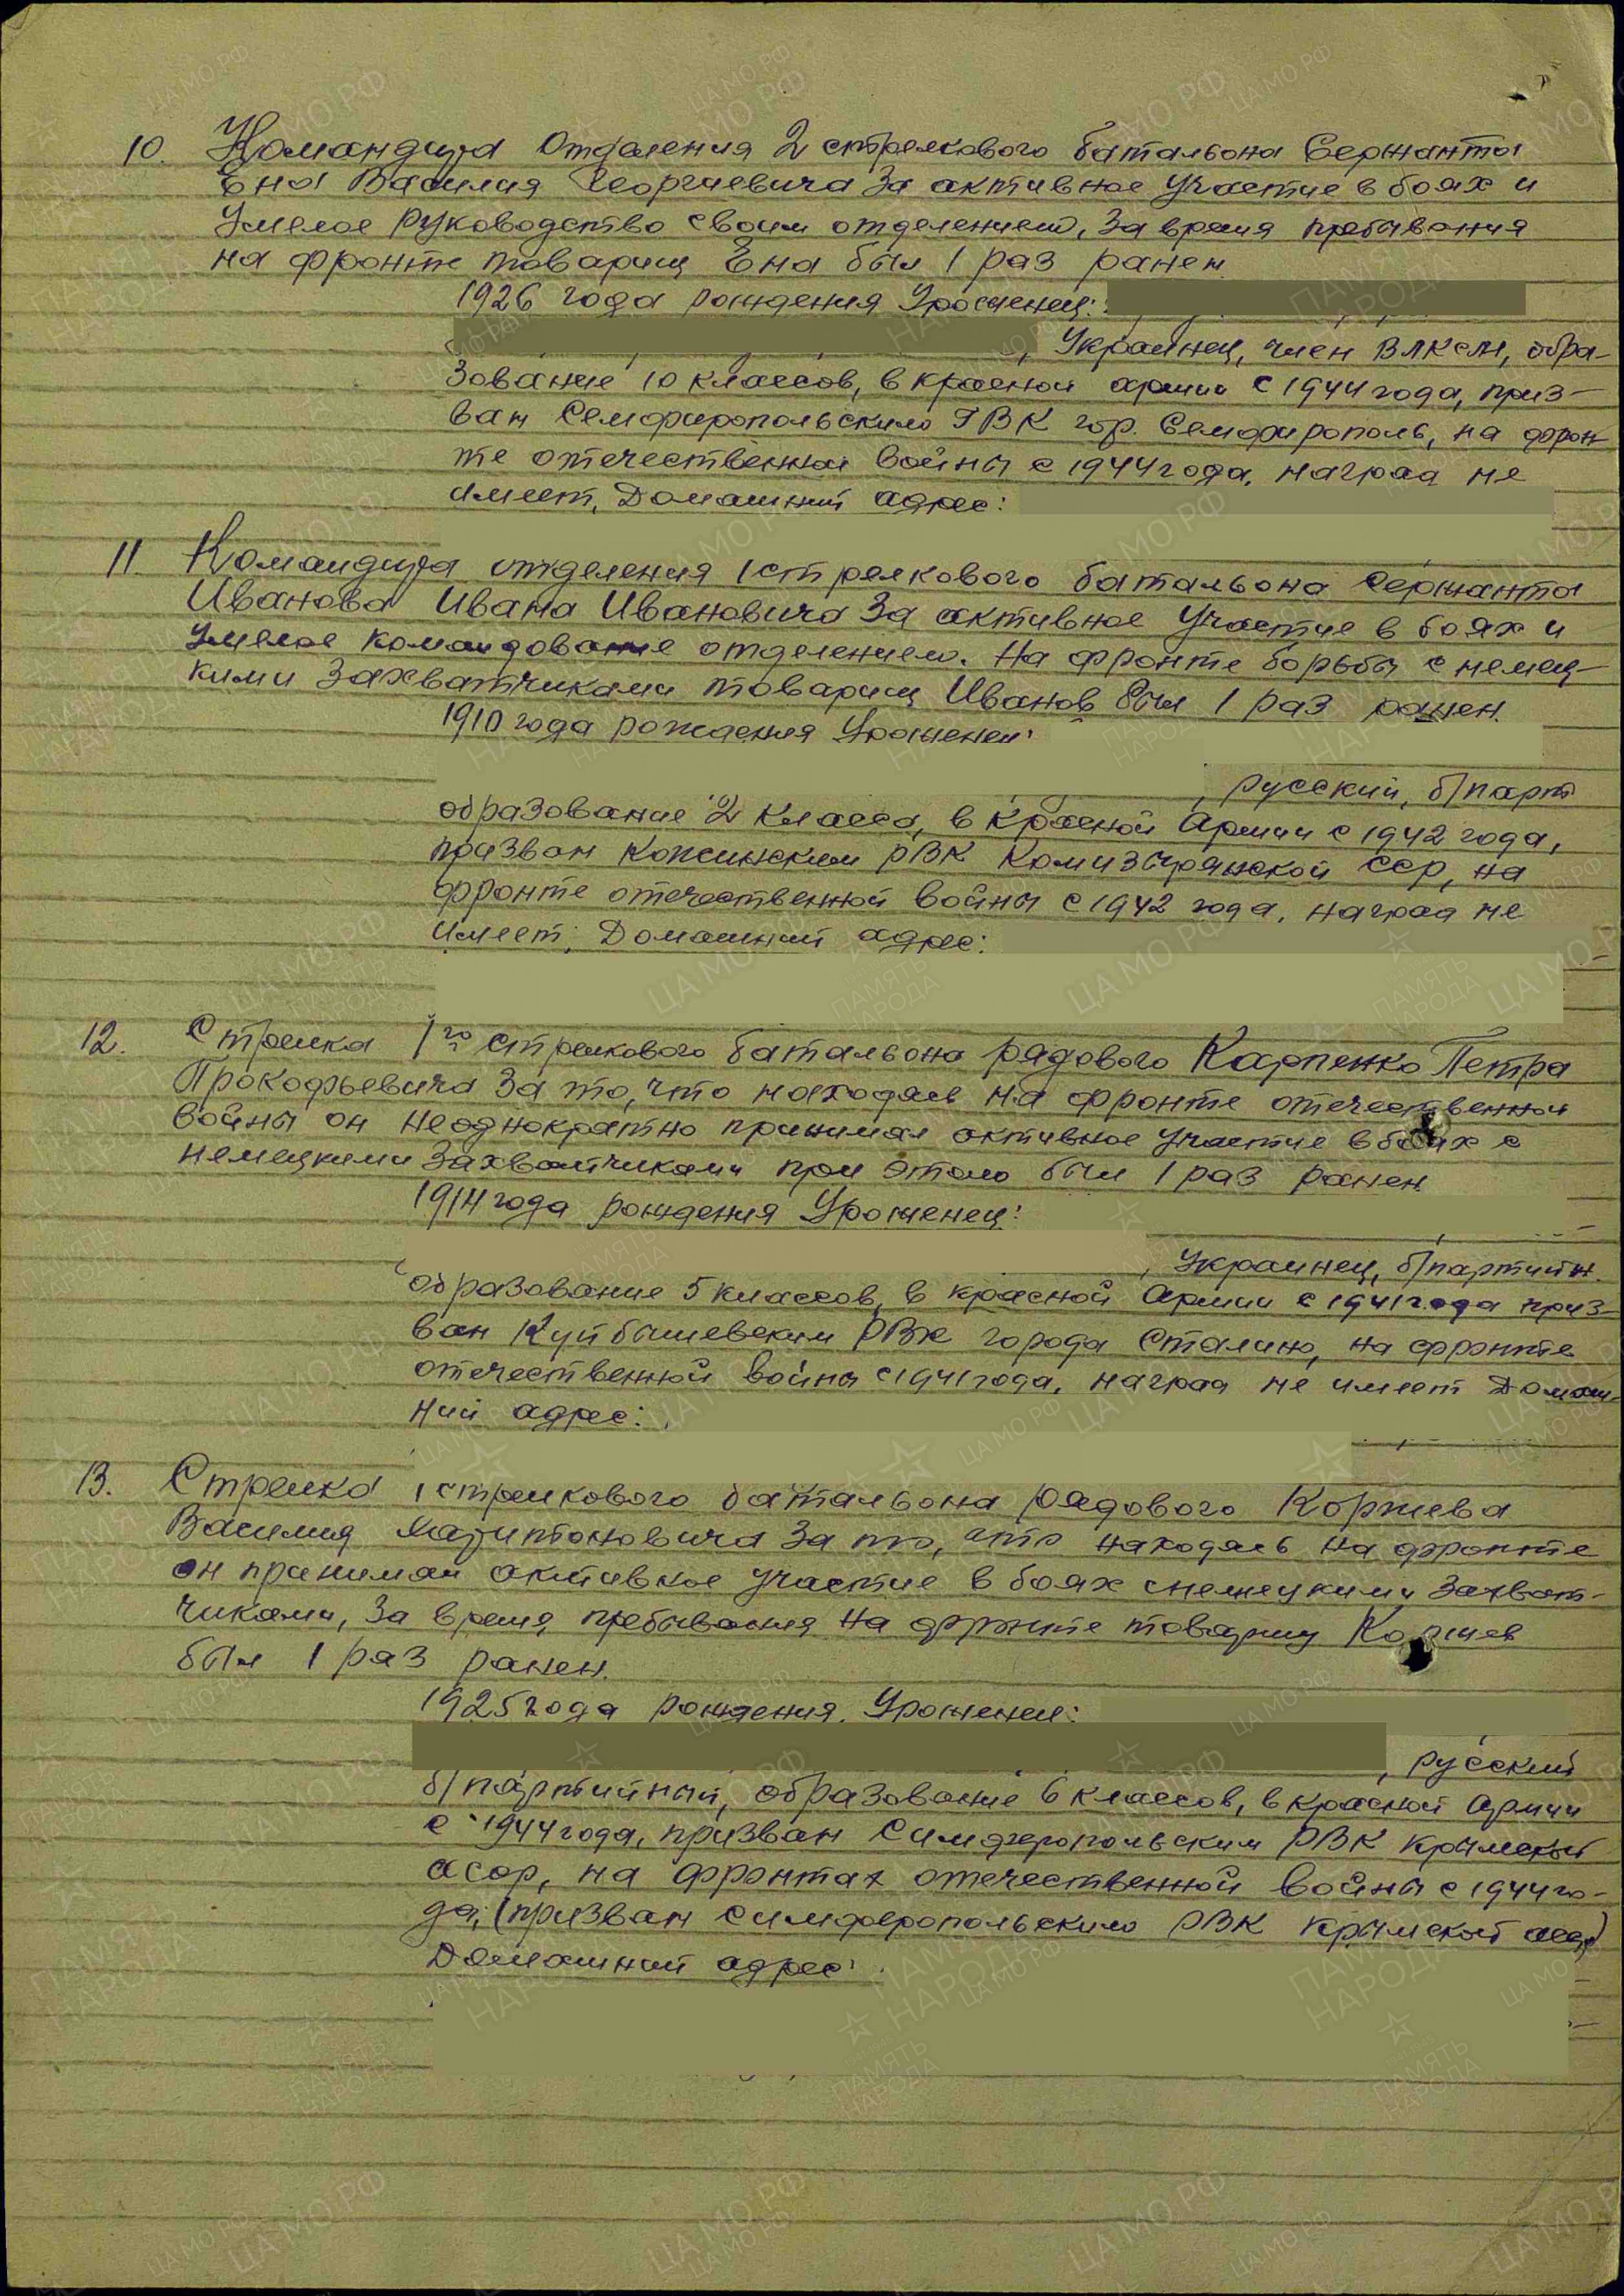 10. Командира отделения 2 стрелкового батальона Сержанта
Ена Василия Георгиевича За активное участие в боях и
умелое руководство своим отделением, За время пребывания
на фронте товарищ Ена был 1 раз ранен
1926 года рождения Уроженец:
, Украинец, член ВЛКСМ, обра-
зование 10 классов, в красной армии с 1944 года, приз-
ван Семфиропольским ГВК гор. Семфирополь, на фрон-
те отечественной войны с 1944 года, наград не
имеет, Домашний адрес:
11. Командира отделения 1 стрелкового батальона Сержанта
Иванова Ивана Ивановича За активное участие в боях и
умелое командование отделением. На фронте борьбы с немец-
кими захватчиками товарищ Иванов был 1 раз ранен.
1910 года рождения Уроженец:
, русский, б/парт
образование 2 класса, в Красной Армии с 1942 года,
призван Кожимским РВК Комизырянской ССР, на
фронте отечественной войны с 1942 года, наград не
имеет, Домашний адрес:
12. Стрелка 1го стрелкового батальона рядового Карпенко Петра
Прокофьевича За то, что находясь на фронте отечественной
войны он неоднократно принимал активное участие в боях с
немецкими захватчиками при этом был 1 раз ранен
1914 года рождения Уроженец:
, Украинец, б/партийн.
образование 5 классов, в красной Армии с 1941 года приз-
ван Куйбышевским РВК города Сталино, на фронте
отечественной войны с 1941 года, наград не имеет Домаш-
ний адрес:
13. Стрелка 1 стрелкового батальона рядового Коржева
Василия Харитоновича За то, что находясь на фронте
он принимал активное участие в боях с немецкими захват-
чиками, За время пребывания на фронте товарищ Коржев
был 1 раз ранен.
1925 года рождения, Уроженец:
, русский
б/партийный, образование 6 классов, в красной Армии
с 1944 года, призван Симферопольским РВК Крымской
асср, на фронтах отечественной войны с 1944 го-
да, (призван симферопольским РВК Крымской асср)
Домашний адрес: